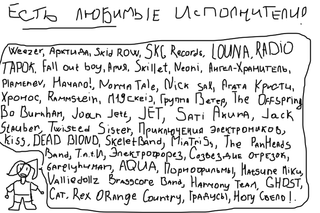 Есть любимые исполнители?
Weezer, Арктида, Skid Row, SKC Records, LOUNA, RADIO
TAPOK, Fall out boy, Ария, Skillet, Neoni, Ангел-Хранитель,
Plamenev, Начало!, Mortal Tale, Nick Sax, Агата Кристи,
Хронос, Rammstein, Группа Ветер, The Offspring
Bo Burnham, Joan Jett, JET, Sati Akura, Jack
Stauber, Twisted Sister, Приключения Электроников,
Kiss, DEAD BLOND, Skelet Band, MiatriSs, The PanHeads
Band, T.a.t.u, Электрофорез, Созвездие отрезок,
barelyhuman, AQUA, Порнофильмы, Hatsune Miku,
Valliedollz Brasscore Band, Harmony Team, GHOST,
Cat. Rex Orange Country, Градусы, Ногу Свело!